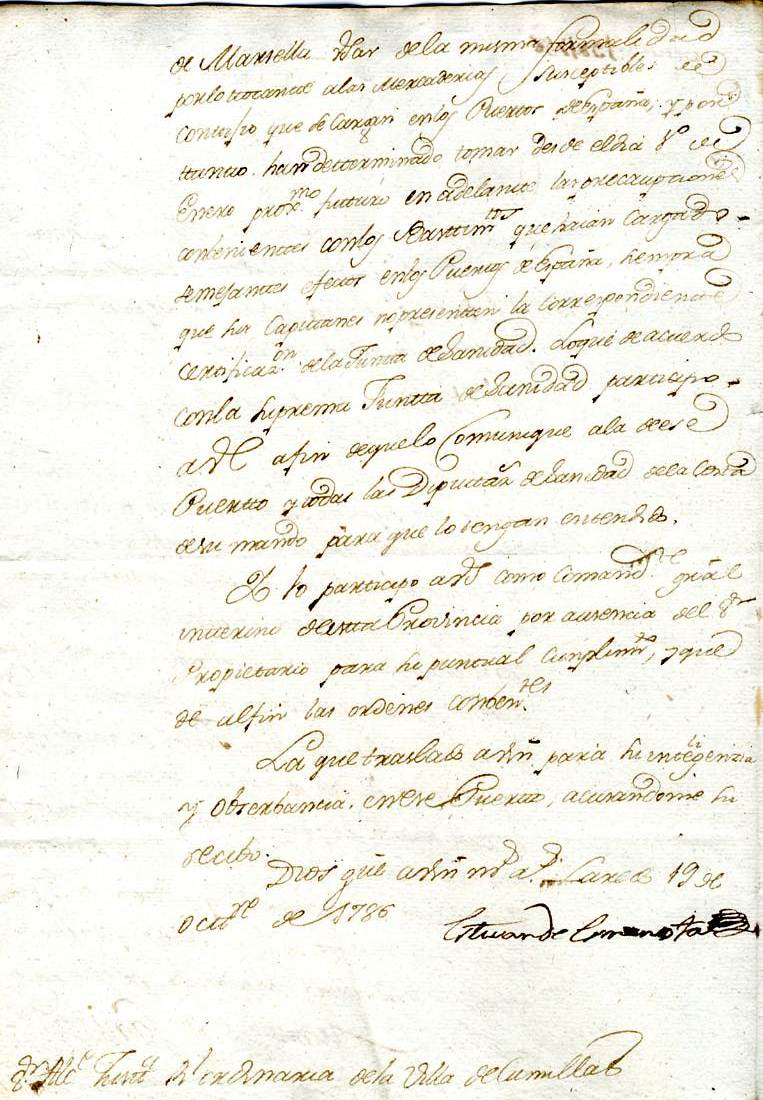 de Marsella usar de la misma formalidad
por lo tocante a las Mercaderias susceptibles de
contagio que se cargan en los Puertos de España, y por
tanto han determinado tomar desde el dia 1º de
Enero proxmo futuro en adelante las precaupciones
combenientes con los Bastimtos que haian cargado
semejantes efectos en los Puertos de España, siempre
que sus Capitanes no presenten la correspondiente
Certificazon de la Junta de Sanidad. Lo que de acuerdo
con la suprema Juntta de Sanidad participo
a VE a fin de que lo Comunique a la de ese
Puertto y todas las Diputaz de Sanidad de la Costa
de su mando para que lo tengan entendido.
Y lo participo a VS como comandte gral
interino de esta Provincia por ausencia del Sr
Propietario para su puntual cumplimto, y que
dé al fin las ordenes combentes
La que traslado a Vm para su inteligenzia
y obserbancia en ese Puertto, acusandome su
recibo.
Dios gue a Vm ms as Laredo 19 de
Octbre de 1786
Sr Alce Justa Rl ordinaria de la Villa de Comillas